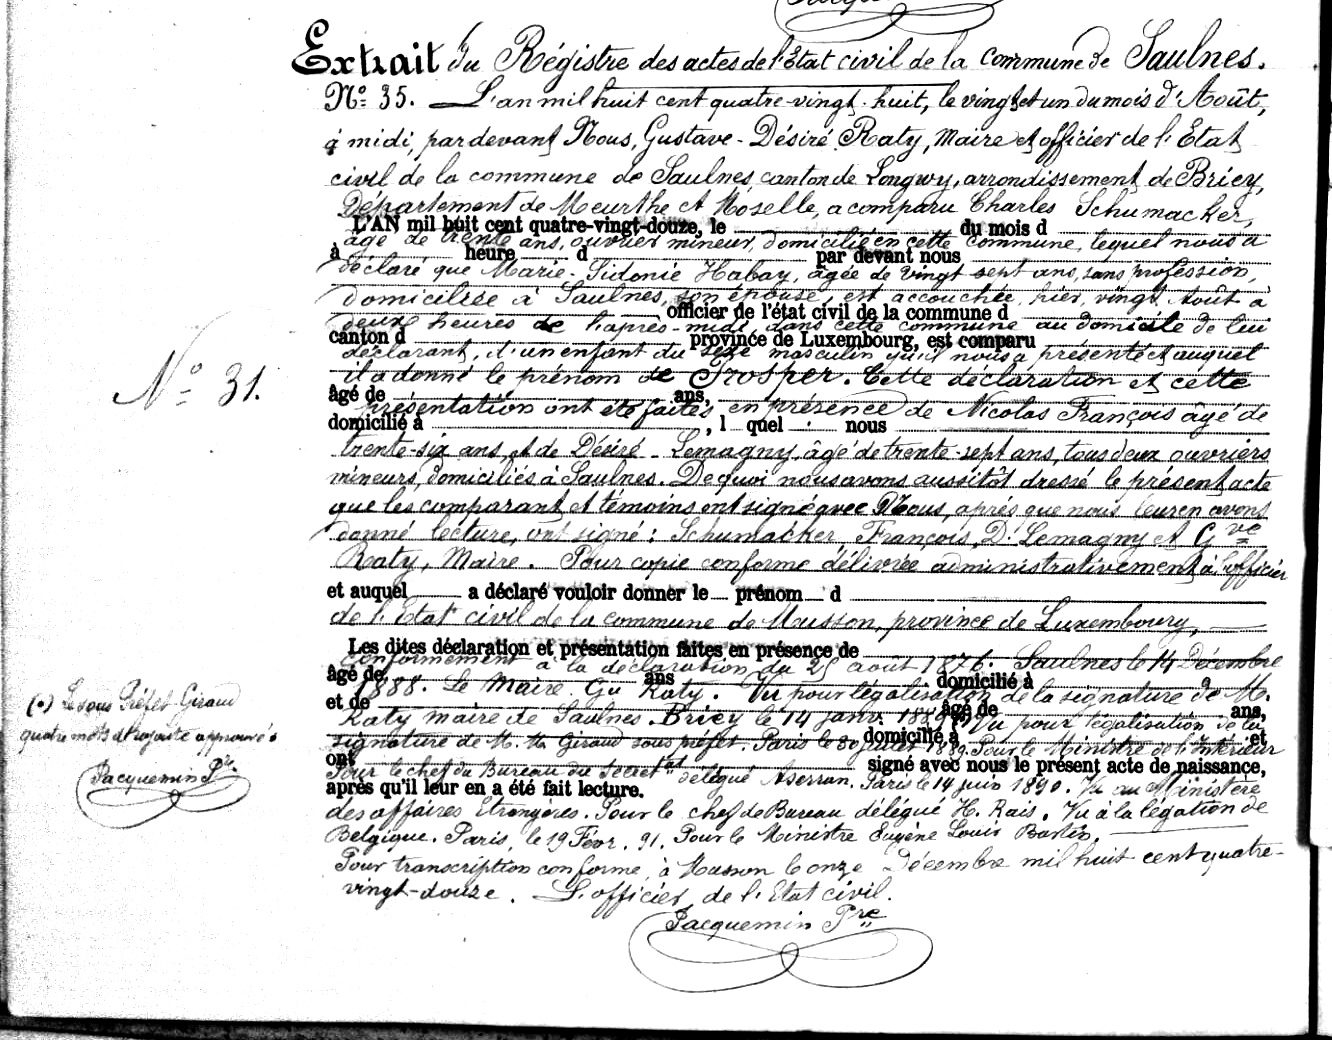 Extrait du Régistre des actes de l'Etat civil de la commune de Saulnes.
No 35. L'an mil huit cent quatre-vingt-huit, le vingt et un du mois d'Août,
à midi, par devant Nous, Gustave-Désiré Raty, Maire et officier de l'Etat
civil de la commune de Saulnes, canton de Longwy, arrondissement de Briey,
Département de Meurthe et Moselle, a comparu Charles Schumacker,
L'AN mil huit cent quatre-vingt-douze, le du mois d
âgé de trente ans, ouvrier mineur, domicilié en cette commune, lequel nous a
à heure d par devant nous
déclaré que Marie-Sidonie Habay, âgée de vingt sept ans, sans profession,
domiciliée à Saulnes, son épouse, est accouchée, hier, vingt Août à
officier de l'état civil de la commune d
deux heures de l'après-midi, dans cette commune au domicile de lui
canton d province de Luxembourg, est comparu
déclarant, d'un enfant du sexe masculin qu'il nous a présenté et auquel
il a donné le prénom de Prosper. Cette déclaration et cette
âgé de ans,
présentation ont été faites en présence de Nicolas François âgé de
domicilié à , l quel nous
No 31.
trente-six ans, et de Désiré Lemagny, âgé de trente-sept ans, tous deux ouvriers
mineurs, domiciliés à Saulnes. De quoi nous avons aussitôt dressé le présent acte
que les comparant et témoins ont signé avec Nous, après que nous leur en avons
donné lecture, ont signé: Schumacker, François, D. Lemagny et Gve
Raty, Maire. Pour copie conforme délivrée administrativement à l'officier
et auquel a déclaré vouloir donner le prénom d
de l'Etat civil de la commune de Musson, province de Luxembourg,
Les dites déclaration et présentation faites en présence de
conformément à la déclaration du 25 août 1876. Saulnes le 14 Décembre
âgé de ans domicilié à
1888. Le Maire Gve Raty. Vu pour légalisation de la signature de M.
et de âgé de ans,
Raty maire de Saulnes. Briey le 14 janv. 1889 Vu pour légalisation de la
domicilié à et
signature de M. Giraud sous préfet. Paris le juillet 1889. Pour le Ministre de l'Intérieur
ont signé avec nous le présent acte de naissance,
Pour le chef du Bureau du Secrétat délégué Paris le 14 juin 1890. Vu au Ministère
après qu'il leur en a été fait lecture.
des affaires Etrangères. Pour le chef de Bureau délégué H. Rais. Vu à la légation de
Belgique. Paris, le 19 Févr. 91. Pour le Ministre Eugène Louis
Pour transcription conforme, à Musson le onze Décembre mil huit cent quatre-
vingt-douze. L'officier de l'Etat civil.
Jacquemin Pre
(•) Le sous Préfet Giraud
quatre mots approuvés
Jacquemin Pre